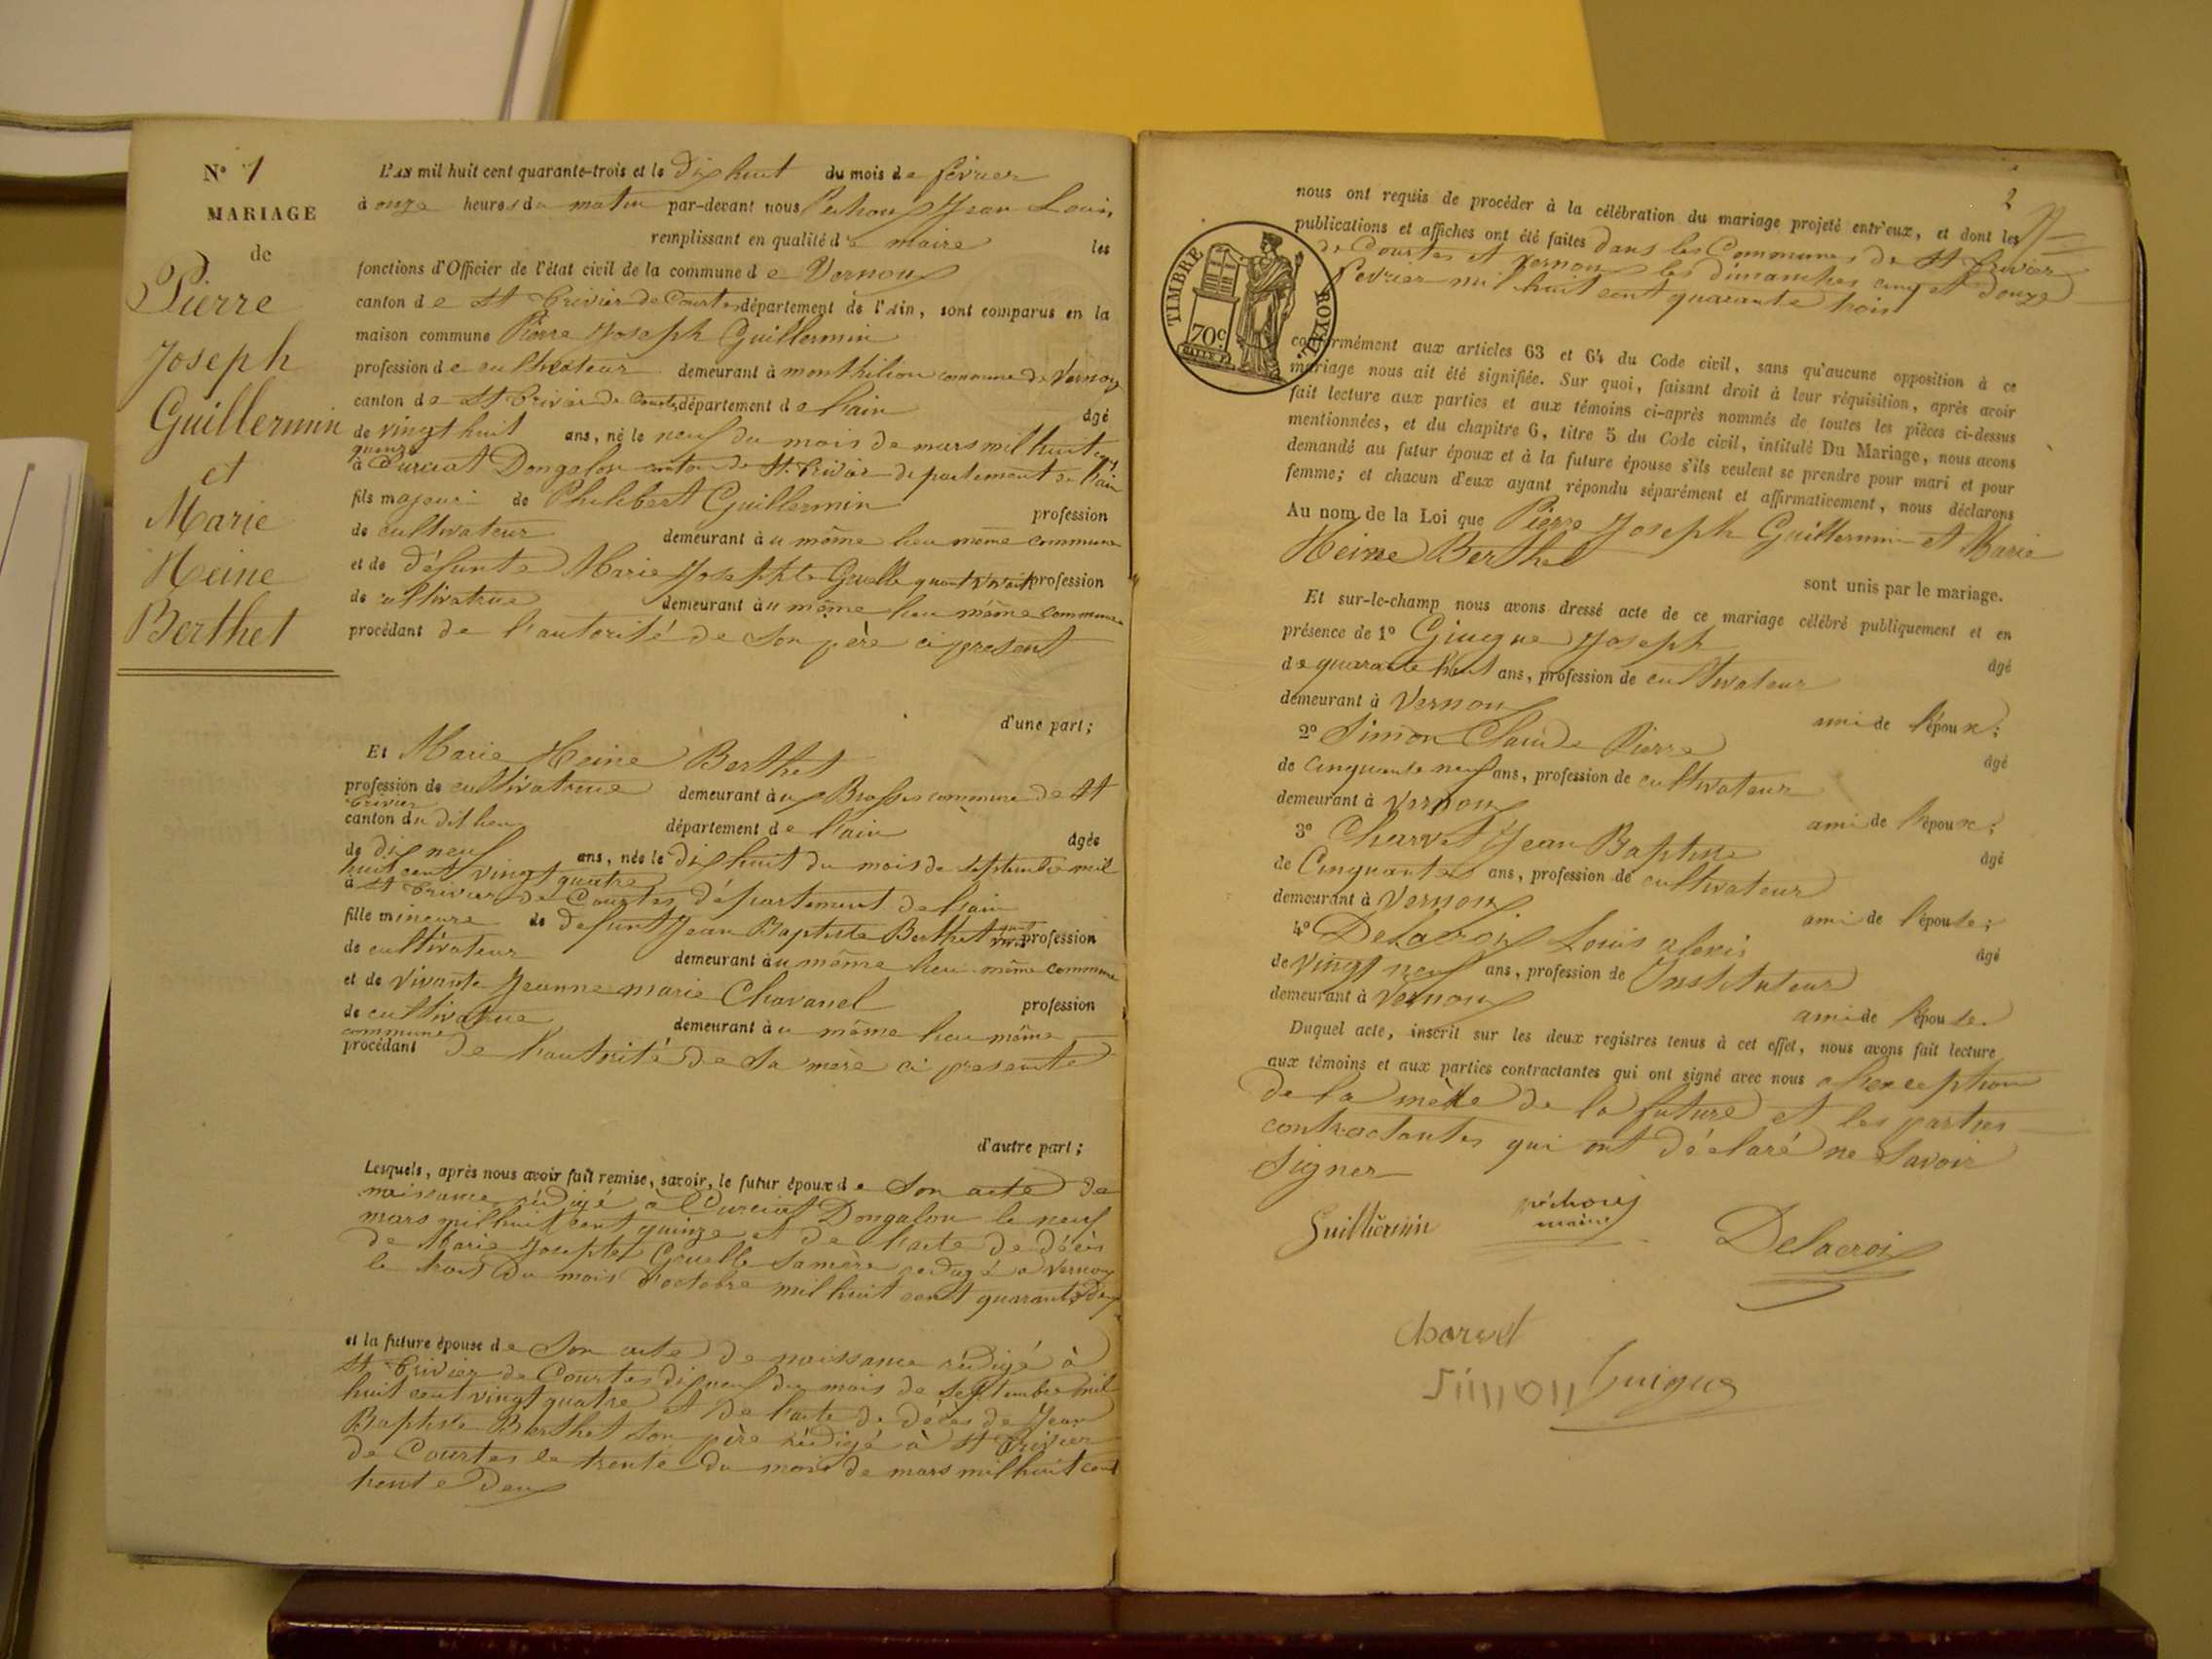 N° 1
MARIAGE
de
Pierre
Joseph
Guillermin
et
Marie
Reine
Berthet
L'AN mil huit cent quarante-trois et le dix huit du mois de fevrier
à onze heures du matin par-devant nous Pechoux Jean Louis
remplissant en qualité de maire les
fonctions d'Officier de l'état civil de la commune de Vernoux
canton de St Trivier de Courtes département de l'Ain, sont comparus en la
maison commune Pierre Joseph Guillermin
profession de cultivateur demeurant à commune de Vernoux
canton de St Trivier de Courtes département de l'ain âgé
de vingt huit ans, né le neuf du mois de mars mil huit cent
quinze
à Curciat Dongalon canton de St Trivier departement de l'ain
fils majeur de Philibert Guillermin profession
de cultivateur demeurant au même lieu même commune
et de défunte Marie Josephte Gruelle quant vivait profession
de cultivatrice demeurant au même lieu même commune
procédant de l'autorité de son père ci present
d'une part;
Et Marie Reine Berthet
profession de cultivatrice demeurant aux Brosses commune de St
Trivier
canton du dit lieu département de l'ain âgée
de dix neuf ans, née le dix huit du mois de septembre mil
huit cent vingt quatre
à St Trivier de Courtes département de l'ain
fille mineure de defunt Jean Baptiste Berthet quant vivait profession
de cultivateur demeurant au même lieu même commune
et de vivante Jeanne marie Chavanel profession
de cultivatrice demeurant au même lieu même
commune
procédant de l'autorité de sa mère ci presente
d'autre part;
Lesquels, après nous avoir fait remise, savoir, le futur époux de son acte de
naissance rédigé à Curciat Dongalon le neuf
mars mil huit cent quinze et de l'acte de décès
de Marie Josephte Gruelle sa mère redigé à Vernoux
le trois du mois d'octobre mil huit cent quarante deux
et la future épouse de son acte de naissance rédigé à
St Trivier de Courtes dix neuf du mois de septembre mil
huit cent vingt quatre et de l'acte de décès de Jean
Baptiste Berthet son père rédigé à St Trivier
de Courtes le trente du mois de mars mil huit cent
trente deux
2
nous ont requis de procéder à la célébration du mariage projeté entr'eux, et dont les
publications et affiches ont été faites dans les Communes de St Trivier
de Courtes et Vernoux les dimanches cinq et douze
fevrier mil huit cent quarante trois
TIMBRE ROYAL.
70c
conformément aux articles 63 et 64 du Code civil, sans qu'aucune opposition à ce
mariage nous ait été signifiée. Sur quoi, faisant droit à leur réquisition, après avoir
fait lecture aux parties et aux témoins ci-après nommés de toutes les pièces ci-dessus
mentionnées, et du chapitre 6, titre 5 du Code civil, intitulé Du Mariage, nous avons
demandé au futur époux et à la future épouse s'ils veulent se prendre pour mari et pour
femme; et chacun d'eux ayant répondu séparément et affirmativement, nous déclarons
Au nom de la Loi que Pierre Joseph Guillermin et Marie
Reine Berthet
sont unis par le mariage.
Et sur-le-champ nous avons dressé acte de ce mariage célébré publiquement et en
présence de 1° Guigue Joseph âgé
de quarante huit ans, profession de cultivateur
demeurant à Vernoux ami de l'époux;
2° Simon Claude Pierre âgé
de cinquante neuf ans, profession de cultivateur
demeurant à Vernoux ami de l'époux;
3° Charvet Jean Baptiste âgé
de Cinquante ans, profession de cultivateur
demeurant à Vernoux ami de l'épouse;
4° Delacroix Louis alexis âgé
de vingt neuf ans, profession de Instituteur
demeurant à Vernoux ami de l'épouse.
Duquel acte, inscrit sur les deux registres tenus à cet effet, nous avons fait lecture
aux témoins et aux parties contractantes qui ont signé avec nous a l'exception
de la mère de la future et les parties
contractantes qui ont déclaré ne savoir
signer
Guillermin
péchoux
maire
Delacroix
Charvet
Simon
Guigue